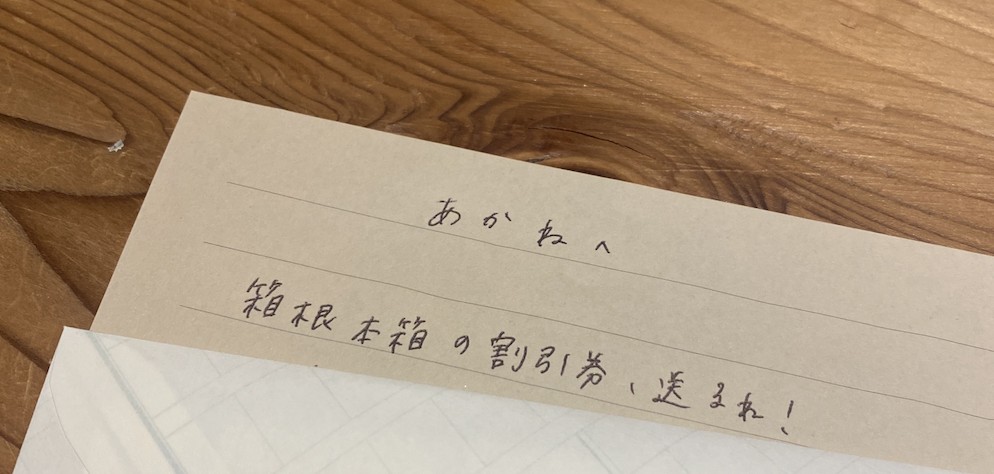 あかねへ
箱根本箱の割引券、送るね!